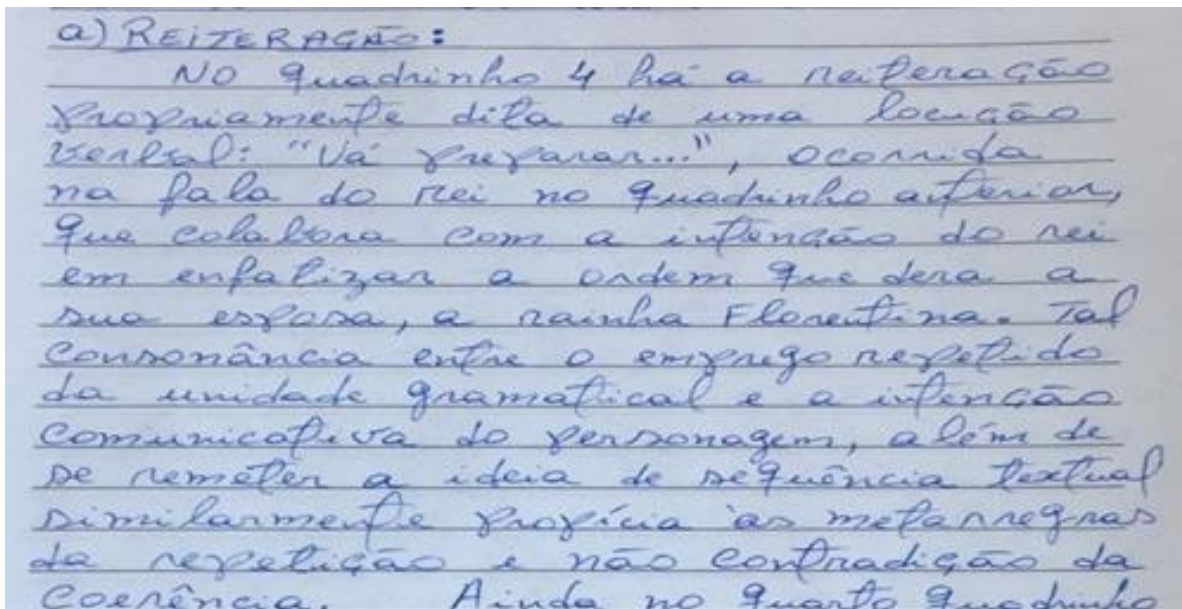 a) REITERAÇÃO:
No quadrinho 4 há a reiteração
propriamente dita de uma locução
verbal: "Vá preparar...", ocorrida
na fala do rei no quadrinho anterior,
que colabora com a intenção do rei
em enfatizar a ordem que dera a
sua esposa, a rainha Florentina. Tal
consonância entre o emprego repetido
da unidade gramatical e a intenção
comunicativa do personagem, além de
se remeter a ideia de sequência textual
similarmente propícia às metarregras
da repetição e não contradição da
coerência. Ainda no quarto quadrinho